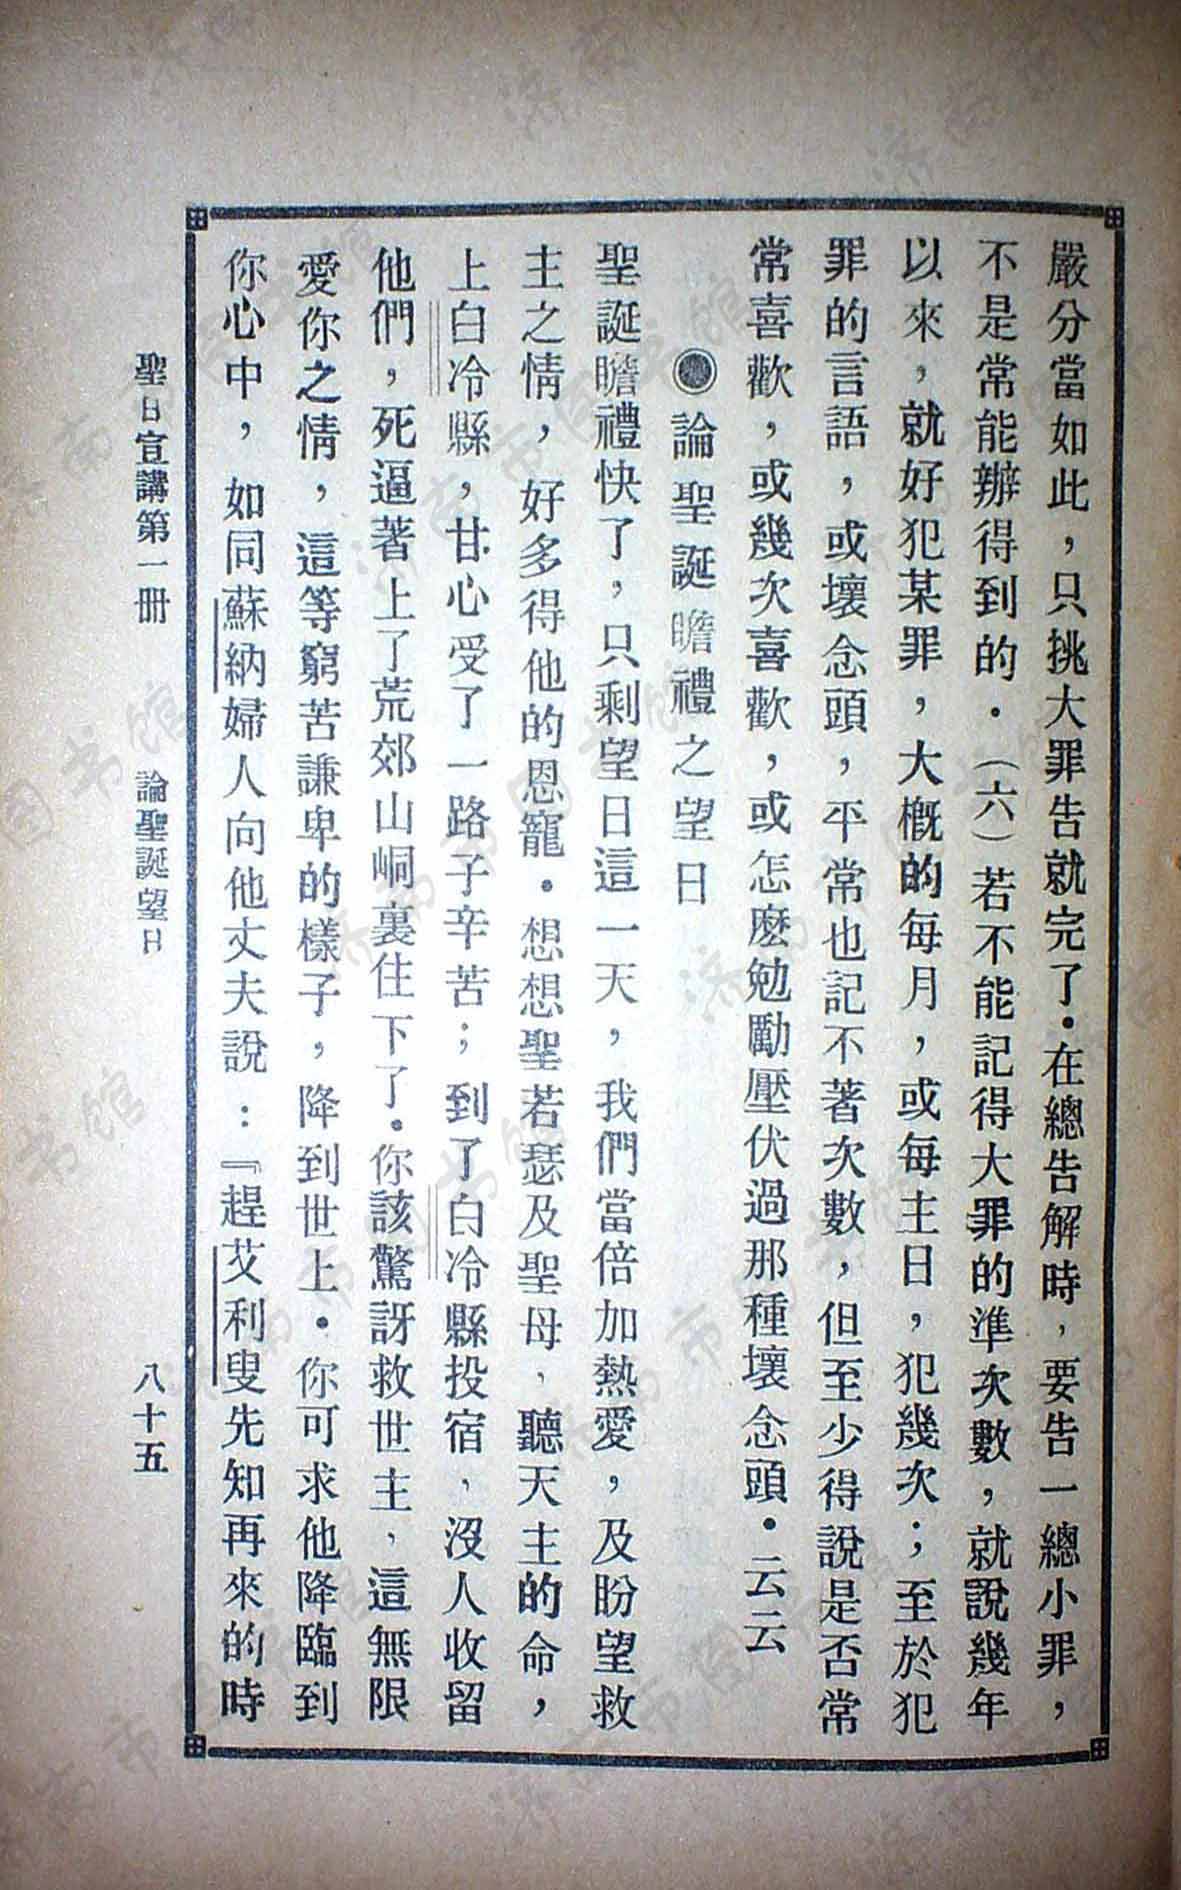 嚴分當如此，只挑大罪告就完了．在總告解時，要告一總小罪，
不是常能辦得到的．（六）若不能記得大罪的準次數，就說幾年
以來，就好犯某罪，大概的每月，或每主日，犯幾次；至於犯
罪的言語，或壞念頭，平常也記不著次數，但至少得說是否常
常喜歡，或幾次喜歡，或怎麼勉勵壓伏過那種壞念頭．云云
◉論聖誕瞻禮之望日
聖誕瞻禮快了，只剩望日這一天，我們當倍加熱愛，及盼望救
主之情，好多得他的恩寵．想想聖若瑟及聖母，聽天主的命，
上白冷縣，甘心受了一路子辛苦；到了白冷縣投宿，沒人收留
他們，死逼著上了荒郊山峒裏住下了．你該驚訝救世主，這無限
愛你之情，這等窮苦謙卑的樣子，降到世上．你可求他降臨到
你心中，如同蘇納婦人向他丈夫說：『趕艾利叟先知再來的時
聖日宣講第一册 論聖誕望日 八十五
济南市图书馆